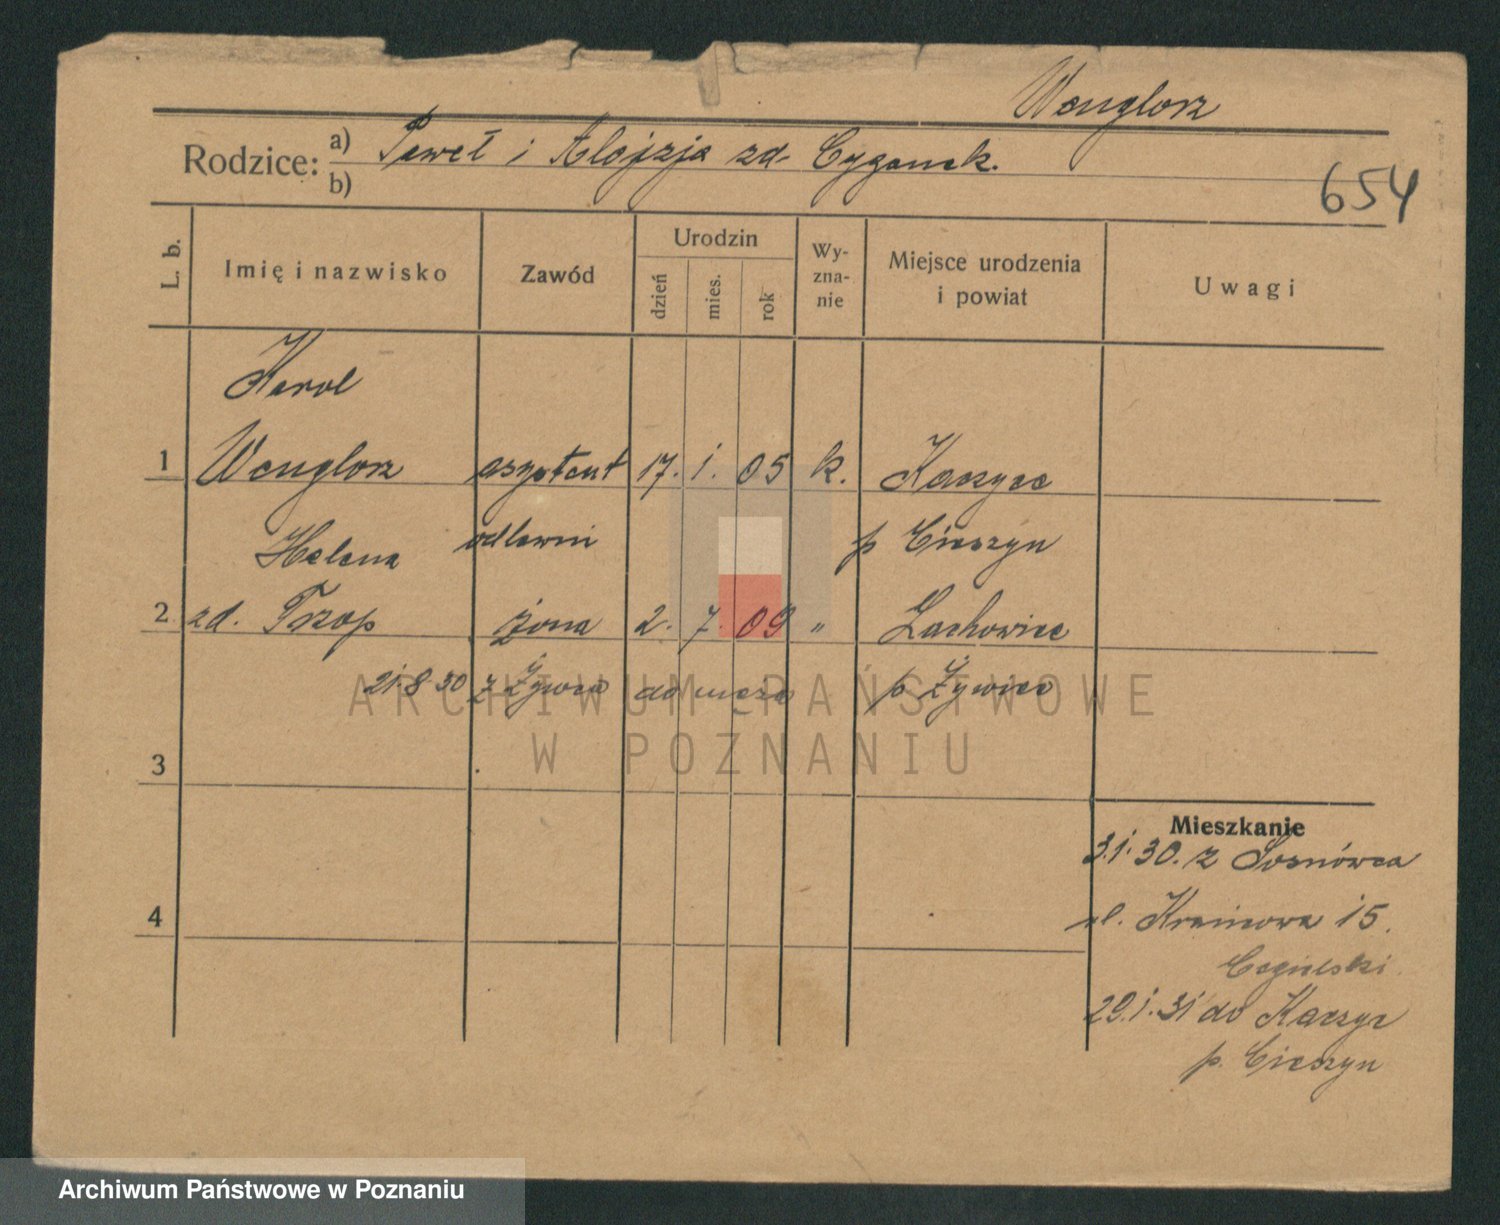 Wenglorz
Rodzice: a) Paweł i Alojzja zd. Cyganek.
b)
654
L. b.
Imię i nazwisko
Zawód
Urodzin
dzień
mies.
rok
Wy-
zna-
nie
Miejsce urodzenia
i powiat
Uwagi
Karol
1 Wenglorz asystent 17. 1. 05 k. Kaczyce
odlewni p Cieszyn
Helena
2 zd. Trzop żona 2. 7. 09 " Lachowice
21.8 30 z Żywca do męża p Żywiec
ARCHIWUM PAŃSTWOWE
W POZNANIU
3
Mieszkanie
3.1.30. z Sosnówca
4 ul. Krainowa 15.
Cegielski.
29.1.31 do Kaczyc
p. Cieszyn
Archiwum Państwowe w Poznaniu